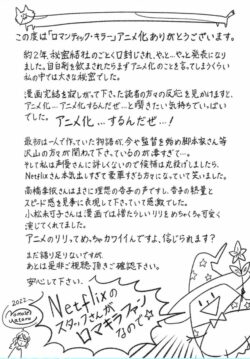 この度は「ロマンティック・キラー」アニメ化ありがとうございます。
約2年、秘密結社のごとく口封じされ、やっと…やっと発表になり
ました。自白剤を飲まされたらまずアニメ化のことを言ってしまうくらい
私の中では大きな秘密でした。
漫画完結を寂しがって下さった読者の方々の反応を見かけますと、
アニメ化…アニメ化するんだぜ…と囁きたい気持ちでいっぱい
でした。
アニメ化…するんだぜ…!
最初は一人で作っていた物語が、今や監督を始め脚本家さん等
沢山の方々が関わって下さっているのが凄すぎて…。
そして私は声優さんに詳しくないので候補は丸投げしましたら、
Netflixさん本気出しすぎて豪華すぎる方々になっていて笑いました。
高橋李依さんはまさに理想の杏子の声ですし、杏子の熱量と
スピード感を見事に表現して下さっていて感激でした。
小松未可子さんは漫画では憎たらしいリリをめちゃくちゃ可愛く
演じてくれてました。
アニメのリリってめちゃカワイイんですよ、信じられます?
まだ語り足りないですが、
あとは是非ご視聴頂きご確認下さい。
安心して下さい。
Netflixの
スタッフさんが
ロマキラファン
なので☆
2022